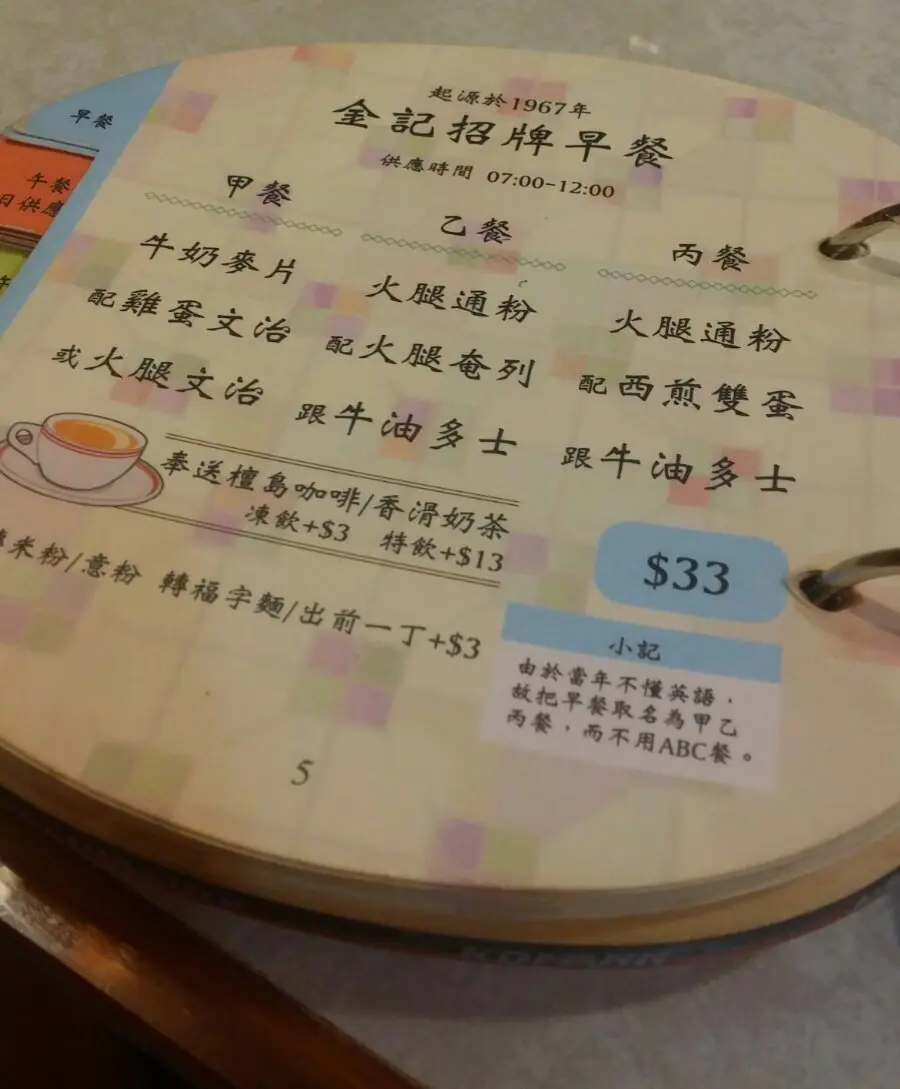 起源於1967年
金記招牌早餐
供應時間 07:00-12:00
早餐
午餐
日供應
甲餐
牛奶麥片
配雞蛋文治
或火腿文治
乙餐
火腿通粉
配火腿奄列
跟牛油多士
丙餐
火腿通粉
配西煎雙蛋
跟牛油多士
奉送檀島咖啡/香滑奶茶
凍飲+$3 特飲+$13
米粉/意粉 轉福字麵/出前一丁+$3
$33
小記
由於當年不懂英語，
故把早餐取名為甲乙
丙餐，而不用ABC餐。
5